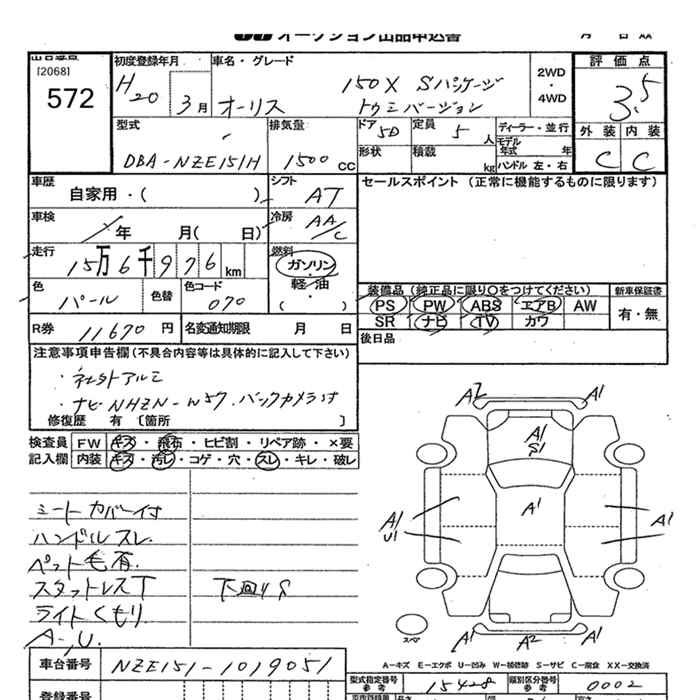 オークション出品申込書
[2068]
572
初度登録年月
H20
3月
車名・グレード
オーリス
150X Sパッケージ
トゥミバージョン
2WD
・
4WD
評価点
3.5
外装 内装
C C
型式
DBA-NZE151H
排気量
1500 CC
ドア
5D
定員
5人
形状
積載
kg
ディーラー・並行
モデル年式 年
ハンドル 左・右
車歴
自家用・( )
シフト
AT
セールスポイント (正常に機能するものに限ります)
車検
年 月( 日)
冷房
AA/C
走行
15万6千976km
燃料
ガソリン
軽・油
( )
色
パール
色替
色コード
070
R券
11670円
名変通知期限 月 日
装備品 (純正品に限り○をつけてください)
PS PW ABS エアB AW
SR ナビ TV カワ
新車保証書
有・無
後日品
注意事項申告欄(不具合内容等は具体的に記入して下さい)
・社外アルミ
・ナビ NHZN-W57.バックカメラ付
修復歴 有 [箇所 ]
検査員
記入欄
FW キズ・飛石・ヒビ割・リペア跡・×要
内装 キズ・汚レ・コゲ・穴・スレ・キレ・破レ
シートカバー付
ハンドルスレ
ペット毛有.
スタットレスT
下廻りS
ライトくもり
A-,U.
A2 A1
A1
S1
A1
A1
U1
A1
スペア
A1 A2 A1
A-キズ E-エクボ U-凹み W-補修跡 S-サビ C-腐食 XX-交換済
車台番号
NZE151-1019051
型式指定番号
参考
15428
類別区分番号
参考
0002
登録番号